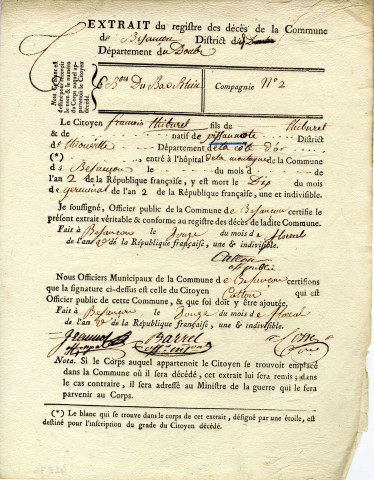 EXTRAIT du registre des décès de la Commune
de Besançon District de
Département du Doubs
Nota. Ce blanc est destiné pour recevoir le nom & le numéro du Corps auquel appartenoit le Citoyen décédé.
6e Bon Du Bas-Rhin Compagnie No 2
Le Citoyen françois thiburet fils de thiburet
& de natif de District
de thionville Département de la côte d'or
(*) entré à l'hôpital de la montagne de la Commune
de Besançon le du mois de de
l'an 2 de la République française, y est mort le Dix du mois
de germinal de l'an 2 de la République française, une et indivisible.
Je soussigné, Officier public de la Commune de Besançon certifie le
présent extrait véritable & conforme au registre des décès de ladite Commune.
Fait à Besançon le Douze du mois de floreal
de l'an 2e de la République française, une & indivisible.
off public
Nous Officiers Municipaux de la Commune de Besancon certifions
que la signature ci-dessus est celle du Citoyen qui est
Officier public de cette Commune, & que foi doit y être ajoutée.
Fait à Besançon le Douze du mois de floreal
de l'an 2e de la République française, une & indivisible.
Barrel
Nota. Si le Corps auquel appartenoit le Citoyen se trouvoit emplacé
dans la Commune où il sera décédé, cet extrait lui sera remis ; dans
le cas contraire, il sera adressé au Ministre de la guerre qui le fera
parvenir au Corps.
(*) Le blanc qui se trouve dans le corps de cet extrait, désigné par une étoile, est
destiné pour l'inscription du grade du Citoyen décédé.